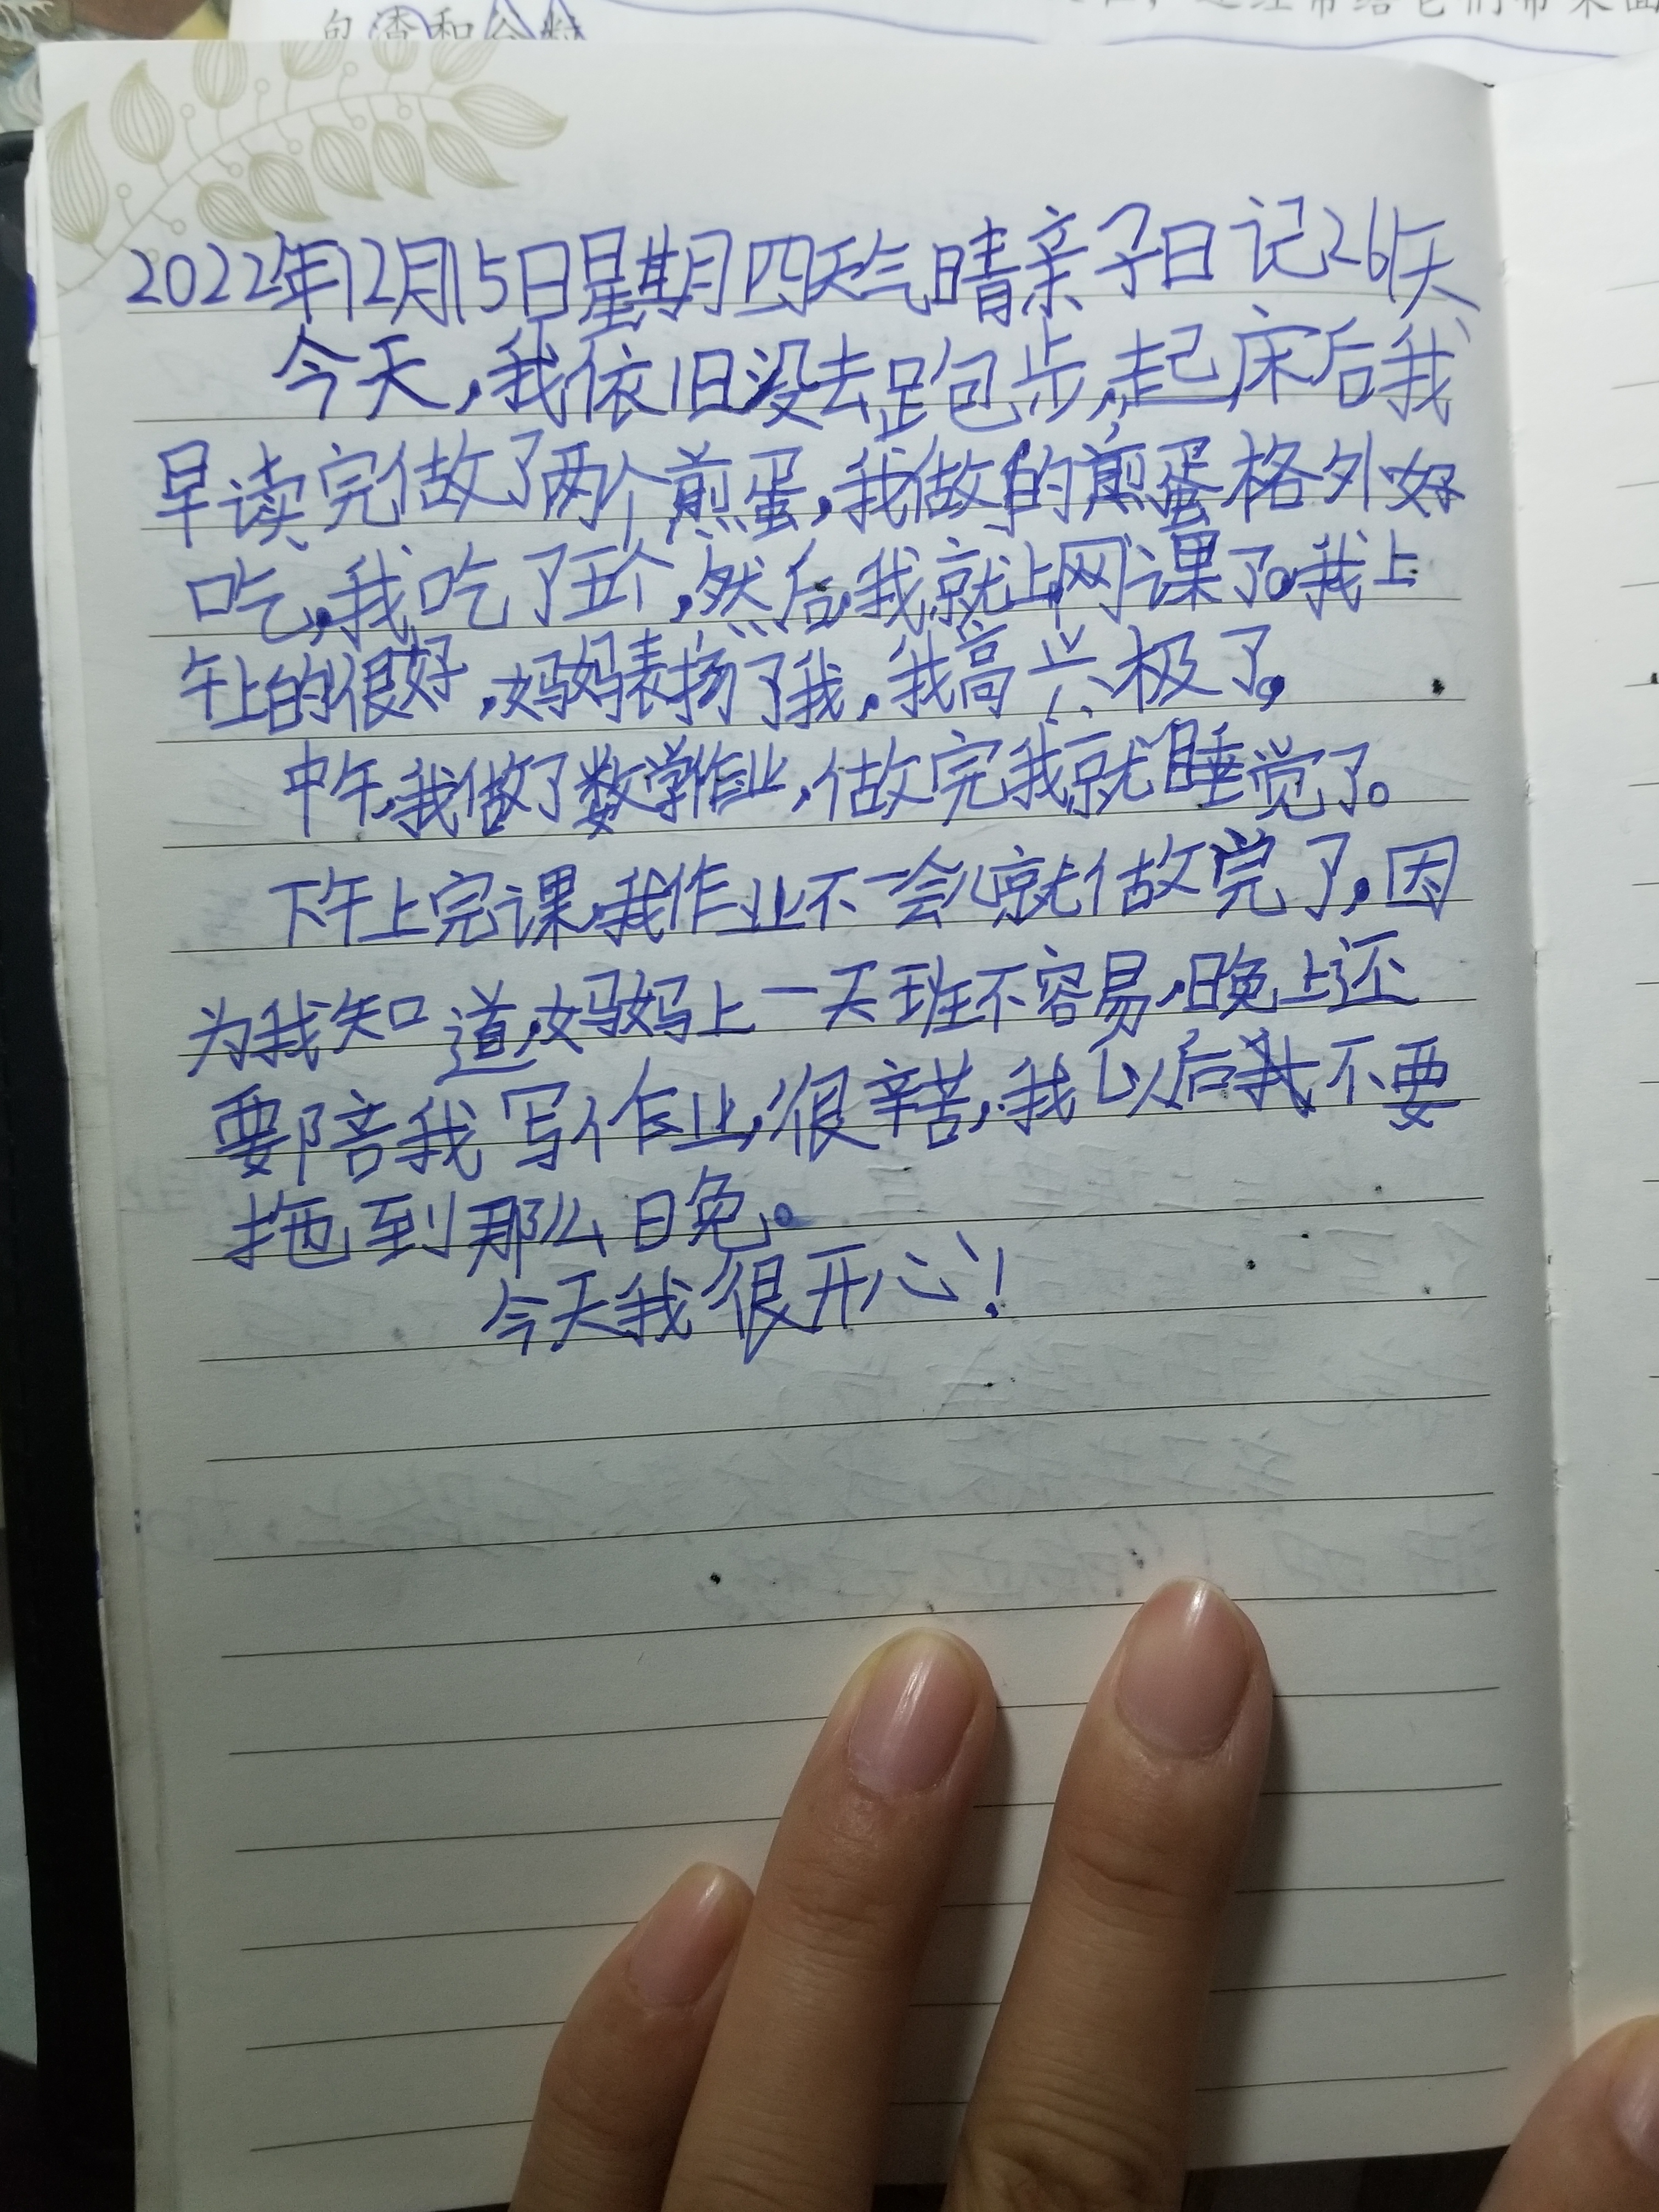 包渣和
2022年12月15日星期四天气晴亲子日记26天
今天,我依旧没去跑步,起床后我
早读完做了两个煎蛋,我做的煎蛋格外好
吃,我吃了五个,然后,我就上网课了。我上
午上的很好,妈妈表扬了我,我高兴极了。
中午,我做了数学作业,做完我就睡觉了。
下午上完课,我作业不一会儿就做完了,因
为我知道,妈妈上一天班不容易,晚上还
要陪我写作业,很辛苦,我以后我不要
拖到那么晚。
今天我很开心!